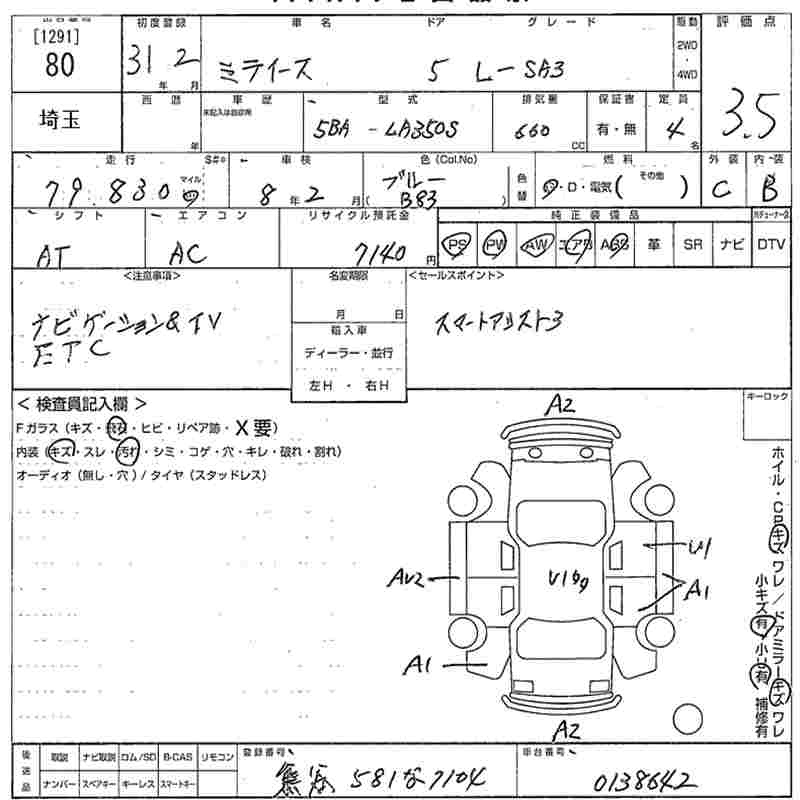 [1291]
80
埼玉
初度登録
31 2
年 月
車名
ミライース
ドア
5
グレード
L-SA3
駆動
2WD
・
4WD
評価点
3.5
西暦
年
車歴
未記入は自家用
型式
5BA-LA350S
排気量
660
CC
保証書
有・無
定員
4
名
走行
S#
79,830
マイル
車検
8年2月
色(Col.No)
ブルー
( B83 )
色替
燃料
・D・電気( その他 )
外装
C
内装
B
シフト
AT
エアコン
AC
リサイクル預託金
7140円
純正装備品
PS PW AW エアB ABS 革 SR ナビ DTV
<注意事項>
ナビゲーション&TV
ETC
名変期限
月 日
輸入車
ディーラー・並行
左H ・ 右H
<セールスポイント>
スマートアシスト3
<検査員記入欄>
Fガラス(キズ・飛石・ヒビ・リペア跡・X要)
内装(キズ・スレ・汚れ・シミ・コゲ・穴・キレ・破れ・割れ)
オーディオ(無し・穴)/タイヤ(スタッドレス)
キーロック
A2
U1
AU2
A1
A1
A2
ホイル・CPキズワレ/ドアミラーキズワレ
小キズ有/小凹有 補修有
後送品
取説 ナビ取説 ロム/SD B-CAS リモコン
ナンバー スペアキー キーレス スマートキー
登録番号
581な7104
車台番号
0138642